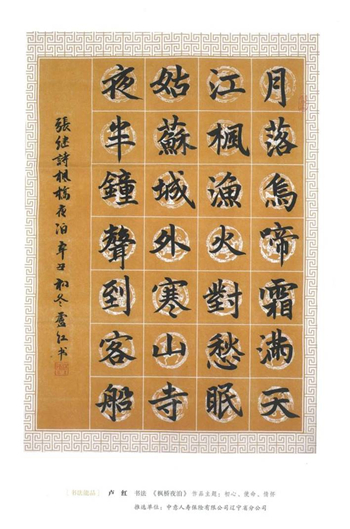 月落烏啼霜滿天
江楓漁火對愁眠
姑蘇城外寒山寺
夜半鐘聲到客船
張继詩楓橋夜泊辛丑初冬盧红书
［书法藏品］ 卢 红 书法 《枫桥夜泊》 作品主题：初心、使命、情怀
推选单位：中意人寿保险有限公司辽宁省分公司